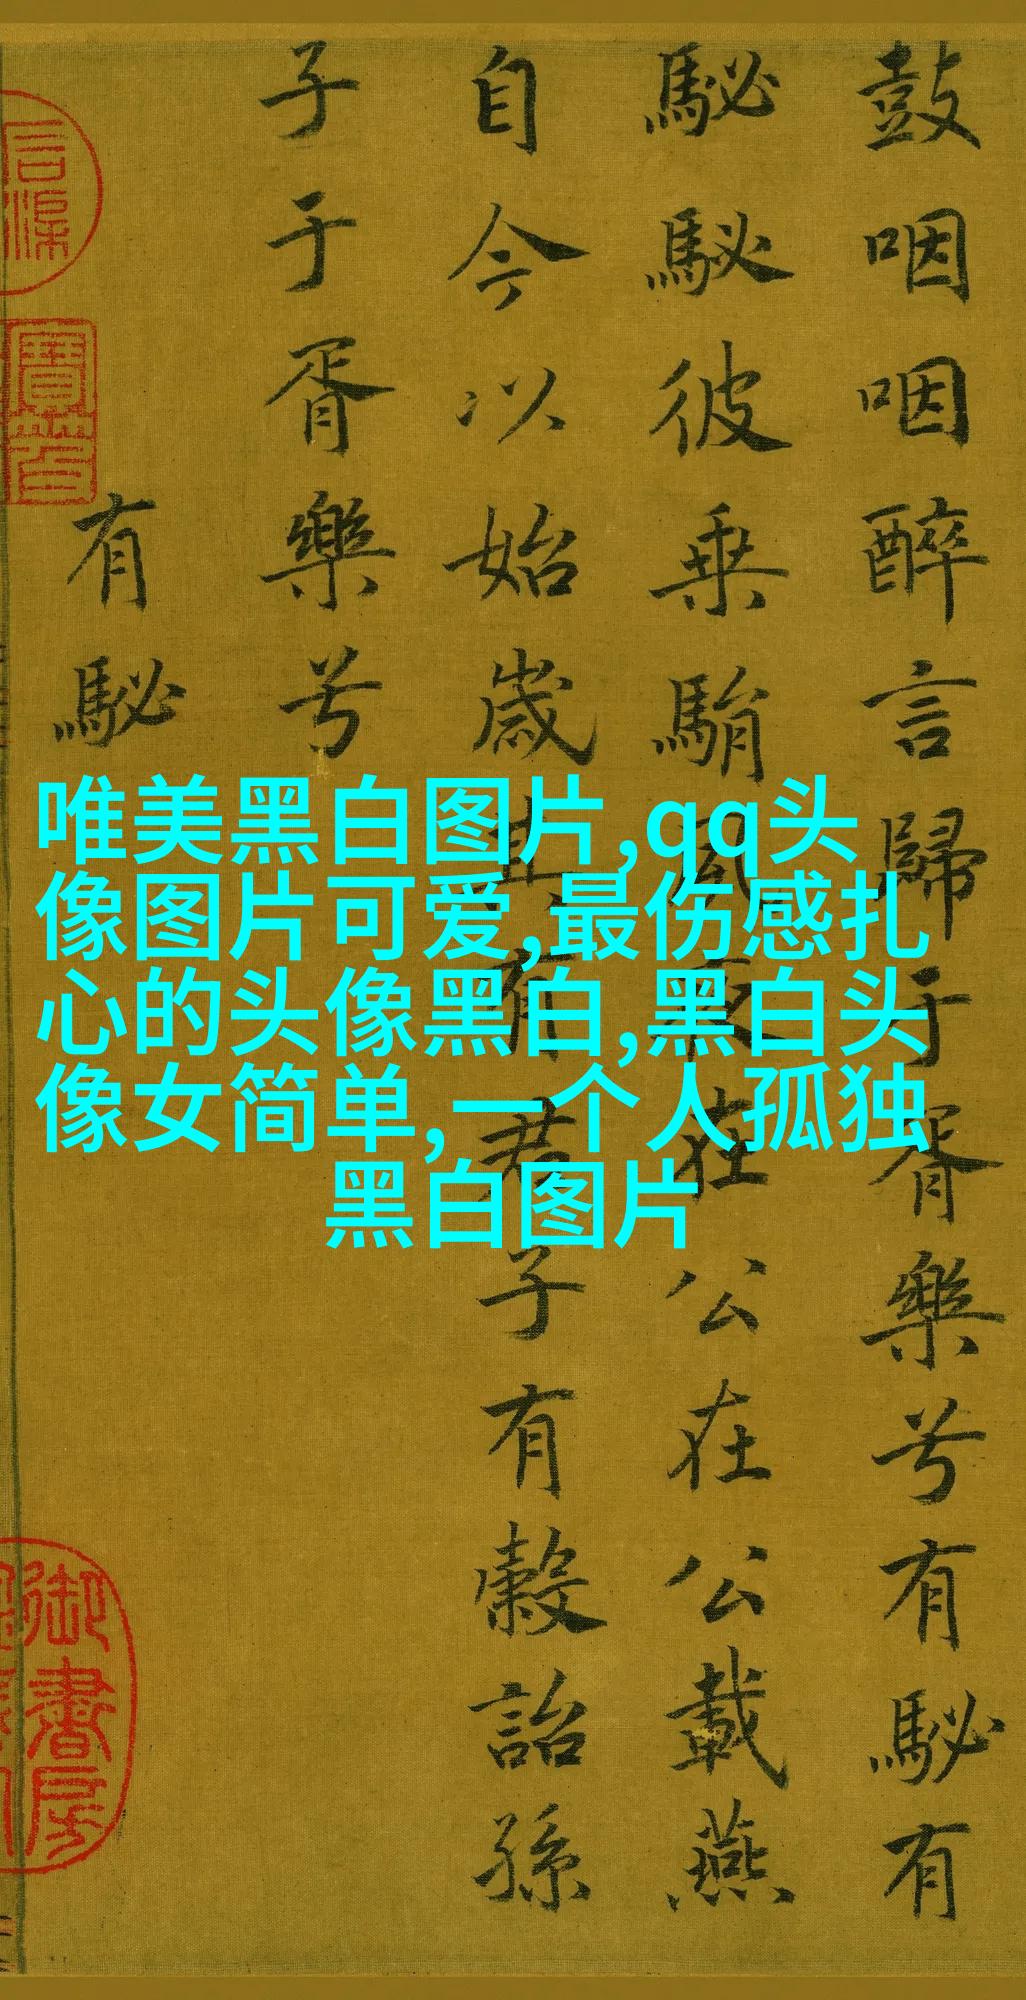 鼓咽咽醉言歸于胥樂兮有駜有
駜駜彼乗駽夙夜在公在公載燕
自今以始歲其有君子有穀詒孫
子于胥樂兮
有駜
唯美黑白图片,qq头
像图片可爱,最伤感扎
心的头像黑白,黑白头
像女简单,一个人孤独
黑白图片
御書房